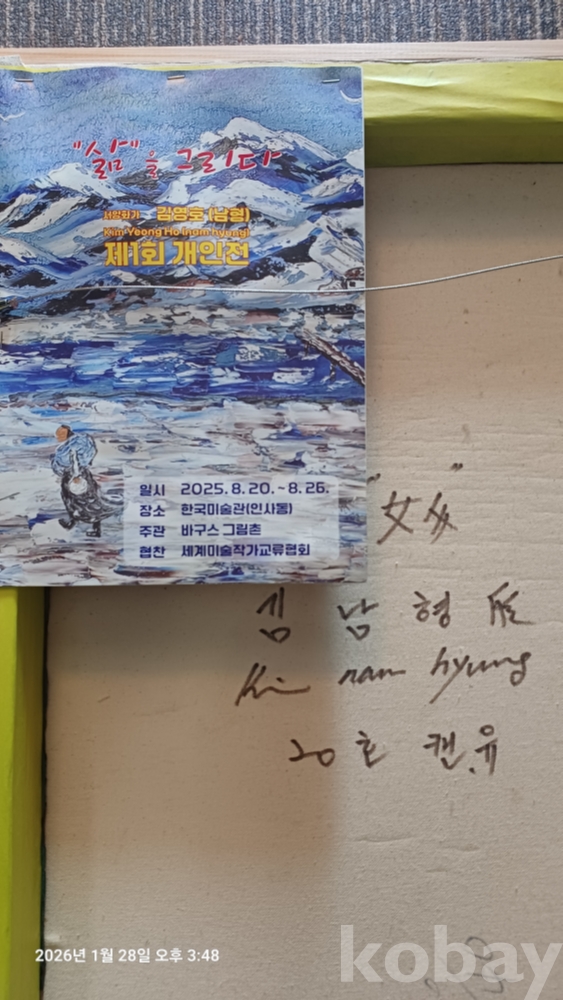 "삶"을 그리다
서양화가 김영호 (남형)
Kim Yeong Ho (nam hyung)
제1회 개인전
일시 2025. 8. 20. ~ 8. 26.
장소 한국미술관(인사동)
주관 바구스 그림촌
협찬 세계미술작가교류협회
김 남 형
Kim nam hyung
20호 캔.유
2026년 1월 28일 오후 3:48
kobay